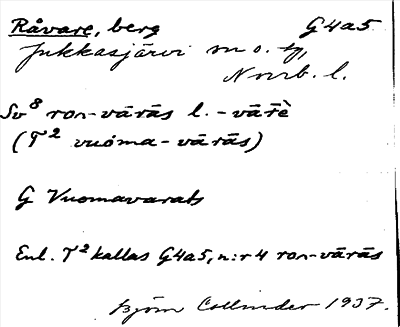 Råvare, berg G4a5
Jukkasjärvi sn o. tg,
Norrb. l.
Sv⁸ ron-vāràs l. -vārè
(T² vuóma-vāràs)
G Vuomavarats
Enl. T² kallas G4a5, n:r 4 ron-vāràs
Björn Collinder 1937.